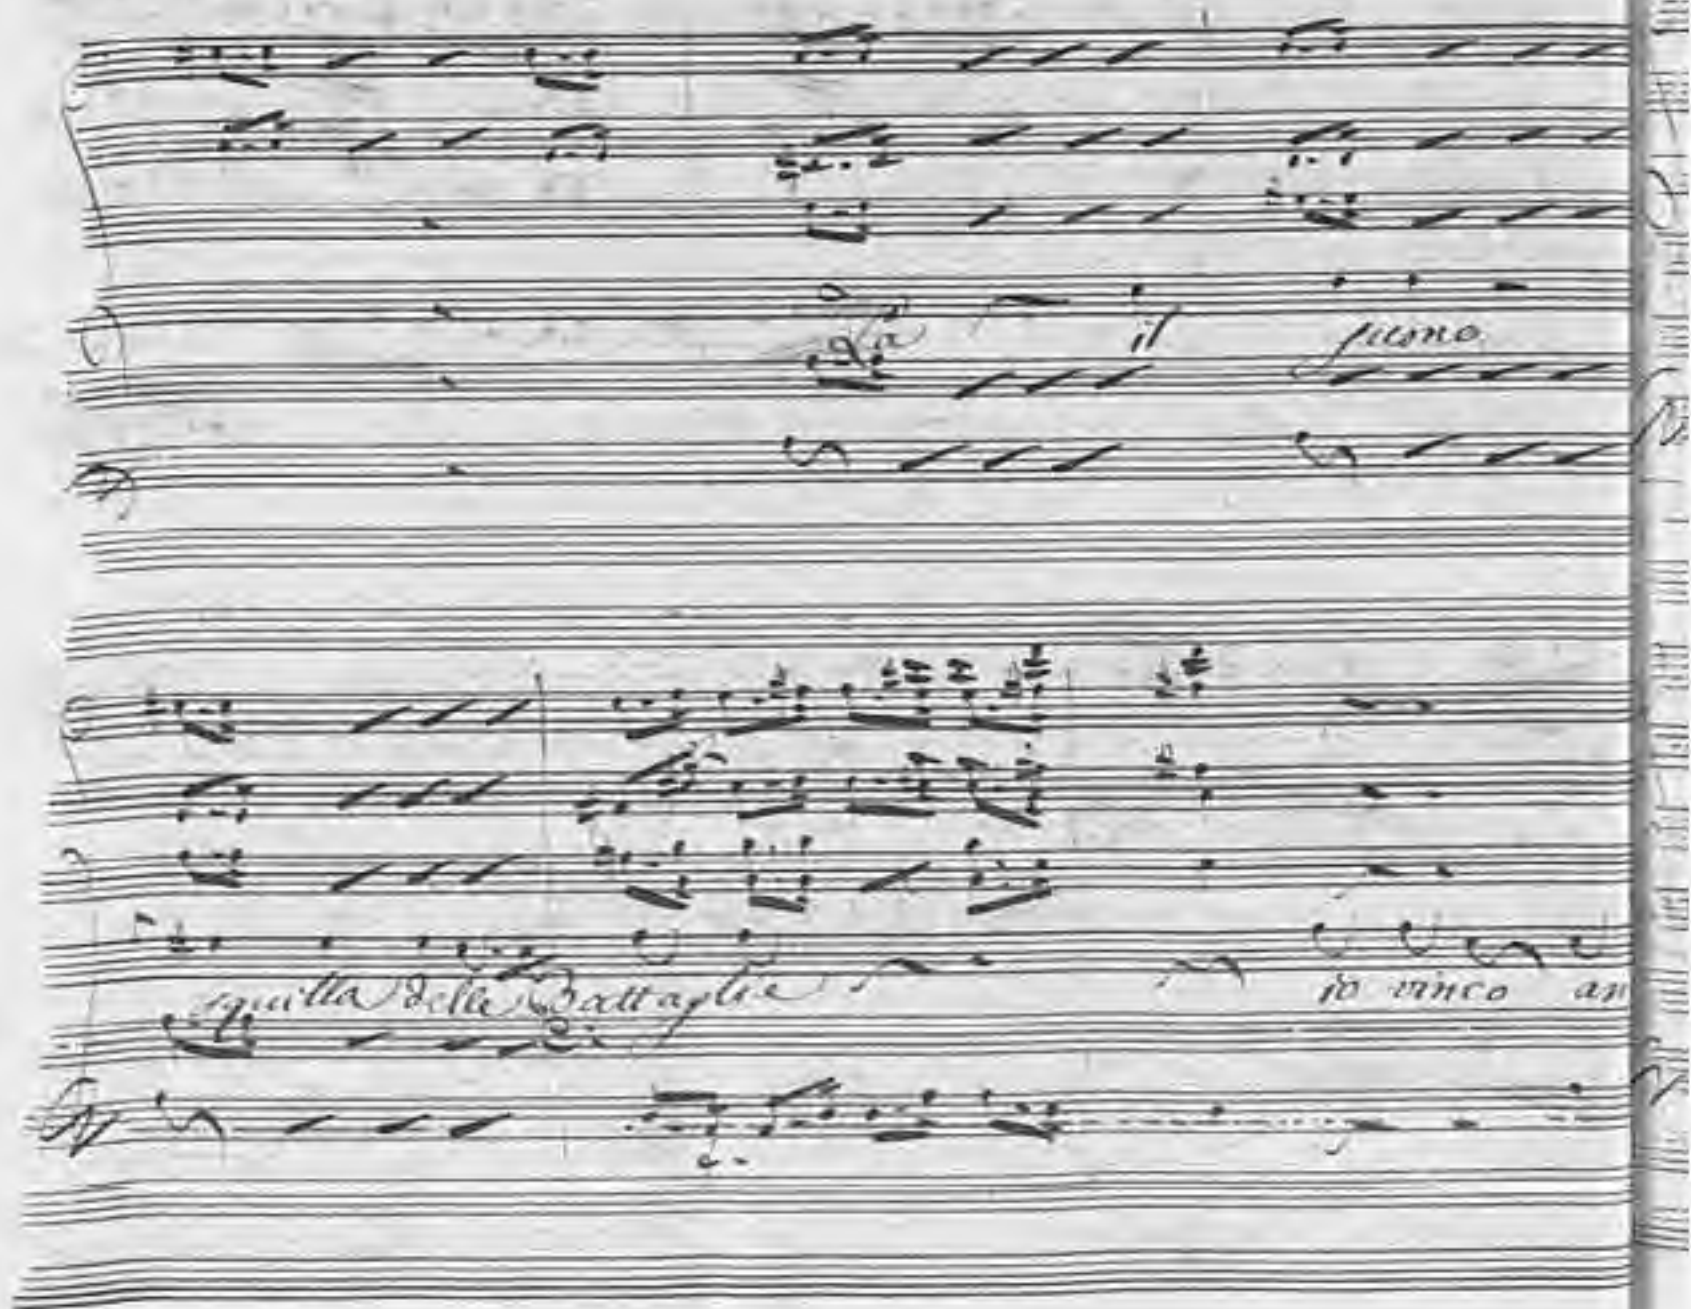 La il suono
squilla delle Battaglie io vinco an